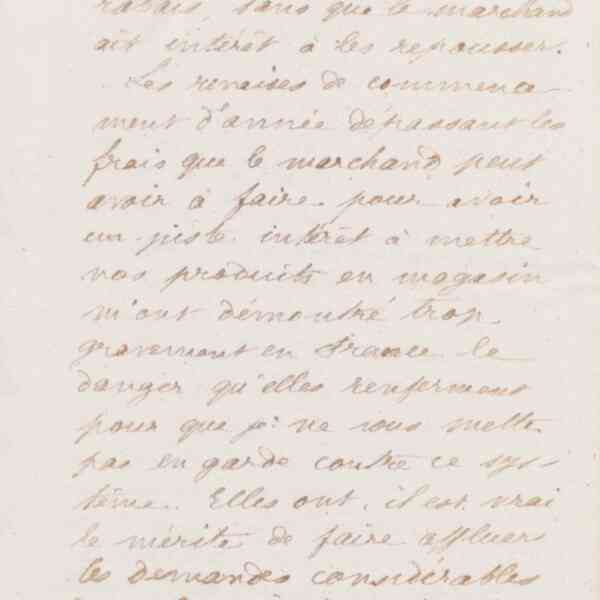 rabais, sans que le marchand
ait intérêt à les repousser.
Les remises de commence
ment d'année dépassant les
frais que le marchand peut
avoir à faire pour avoir
un juste intérêt à mettre
nos produits en magasin
m'ont démontré trop
gravement en France le
danger qu'elles renferment
pour que je ne vous mette
pas en garde contre ce sys-
tème. Elles ont, il est vrai
le mérite de faire affluer
les demandes considérables